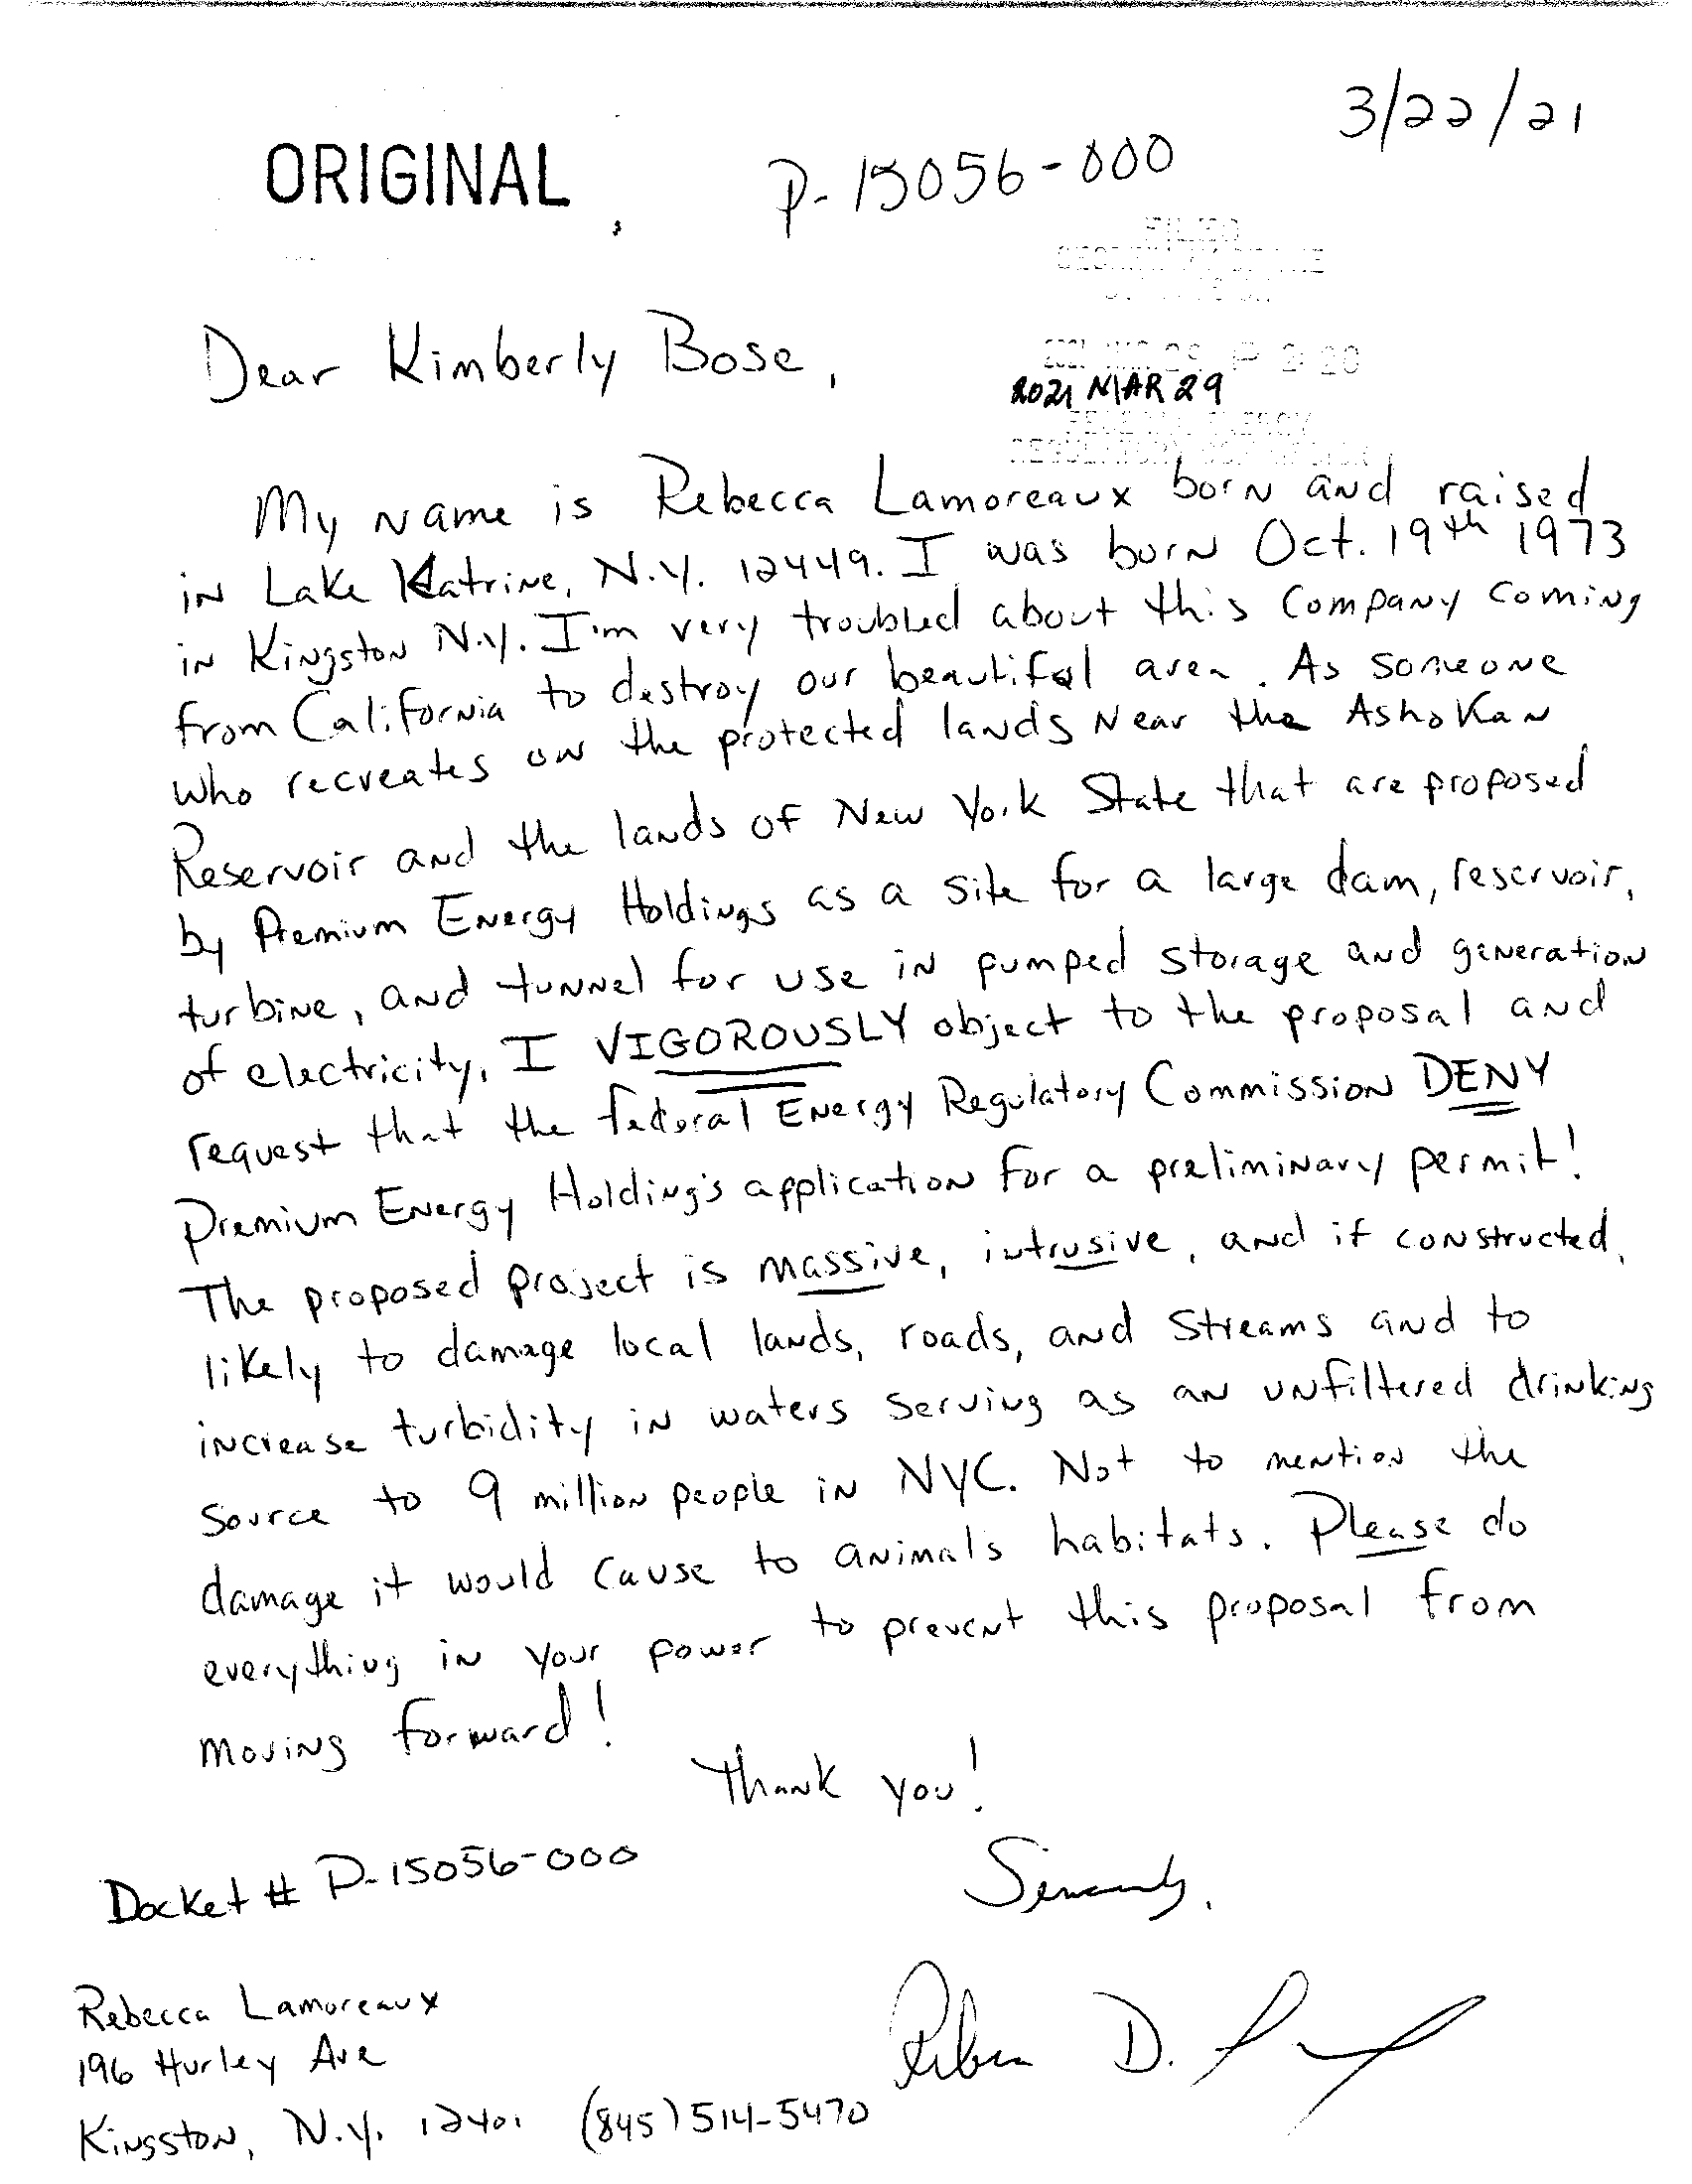 3/22/21
ORIGINAL
P-15056-000
FILED
2021 MAR 29 P 2:20
2021 MAR 29
Dear Kimberly Bose,
My name is Rebecca Lamoreaux born and raised
in Lake Katrine, N.Y. 12449. I was born Oct. 19th 1973
in Kingston N.Y. I'm very troubled about this company coming
from California to destroy our beautiful area. As someone
who recreates on the protected lands near the Ashokan
Reservoir and the lands of New York State that are proposed
by Premium Energy Holdings as a site for a large dam, reservoir,
turbine, and tunnel for use in pumped storage and generation
of electricity, I VIGOROUSLY object to the proposal and
request that the federal Energy Regulatory Commission DENY
Premium Energy Holding's application for a preliminary permit!
The proposed project is massive, intrusive, and if constructed,
likely to damage local lands, roads, and streams and to
increase turbidity in waters serving as an unfiltered drinking
source to 9 million people in NYC. Not to mention the
damage it would cause to animal's habitats. Please do
everything in your power to prevent this proposal from
moving forward!
Thank you!
Docket # P-15056-000
Sincerely,
Rebecca Lamoreaux
196 Hurley Ave
Rebecca D.
Kingston, N.Y. 12401 (845) 514-5470